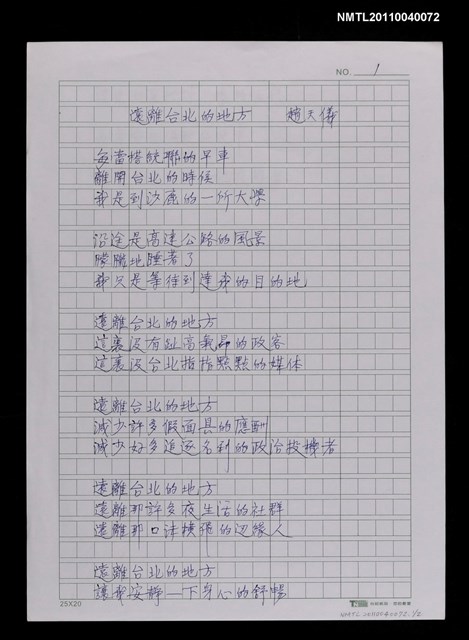 NMTL20110040072
NO. 1
遠離台北的地方 趙天儀
每當搭統聯的早車
離開台北的時候
我是到沙鹿的一所大學
沿途是高速公路的風景
朦朧地睡著了
我只是等待到達我的目的地
遠離台北的地方
這裏沒有趾高氣昂的政客
這裏沒台北指指點點的媒体
遠離台北的地方
減少許多假面具的應酬
減少好多追逐名利的政治投機者
遠離台北的地方
遠離那許多夜生活的社群
遠離那口沫橫飛的边緣人
遠離台北的地方
讓我安靜一下身心的舒暢
25X20
NMTL20110040072. 1/2